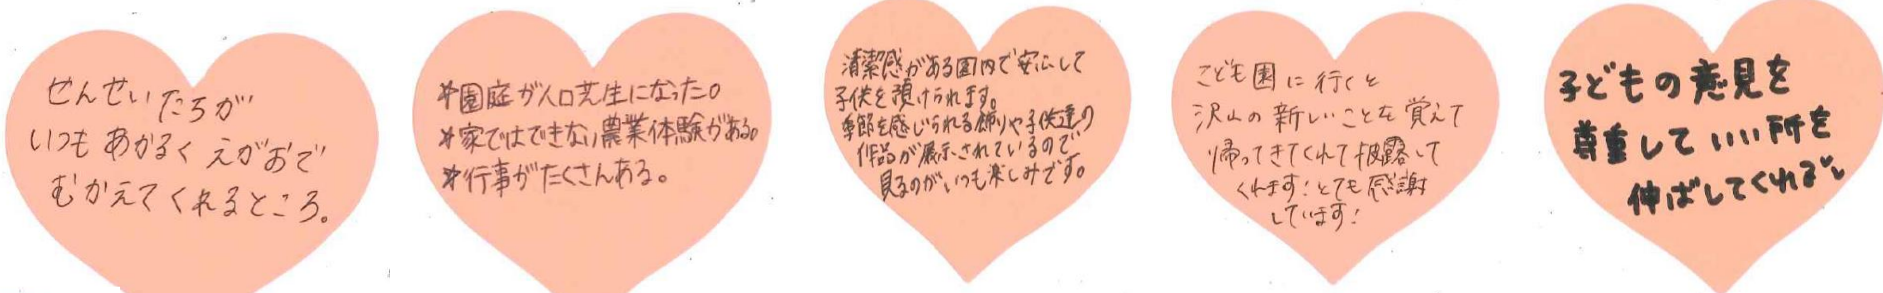 せんせいたちが
いつもあかるくえがおで
むかえてくれるところ。
*園庭が人口芝生になった。
*家ではできない農業体験がある。
*行事がたくさんある。
清潔感がある園内で安心して
子供を預けられます。
季節を感じられる飾りや子供達の
作品が展示されているので
見るのがいつも楽しみです。
こども園に行くと
沢山の新しいことを覚えて
帰ってきてくれて披露して
くれます!とても感謝
しています!
子どもの意見を
尊重していい所を
伸ばしてくれる